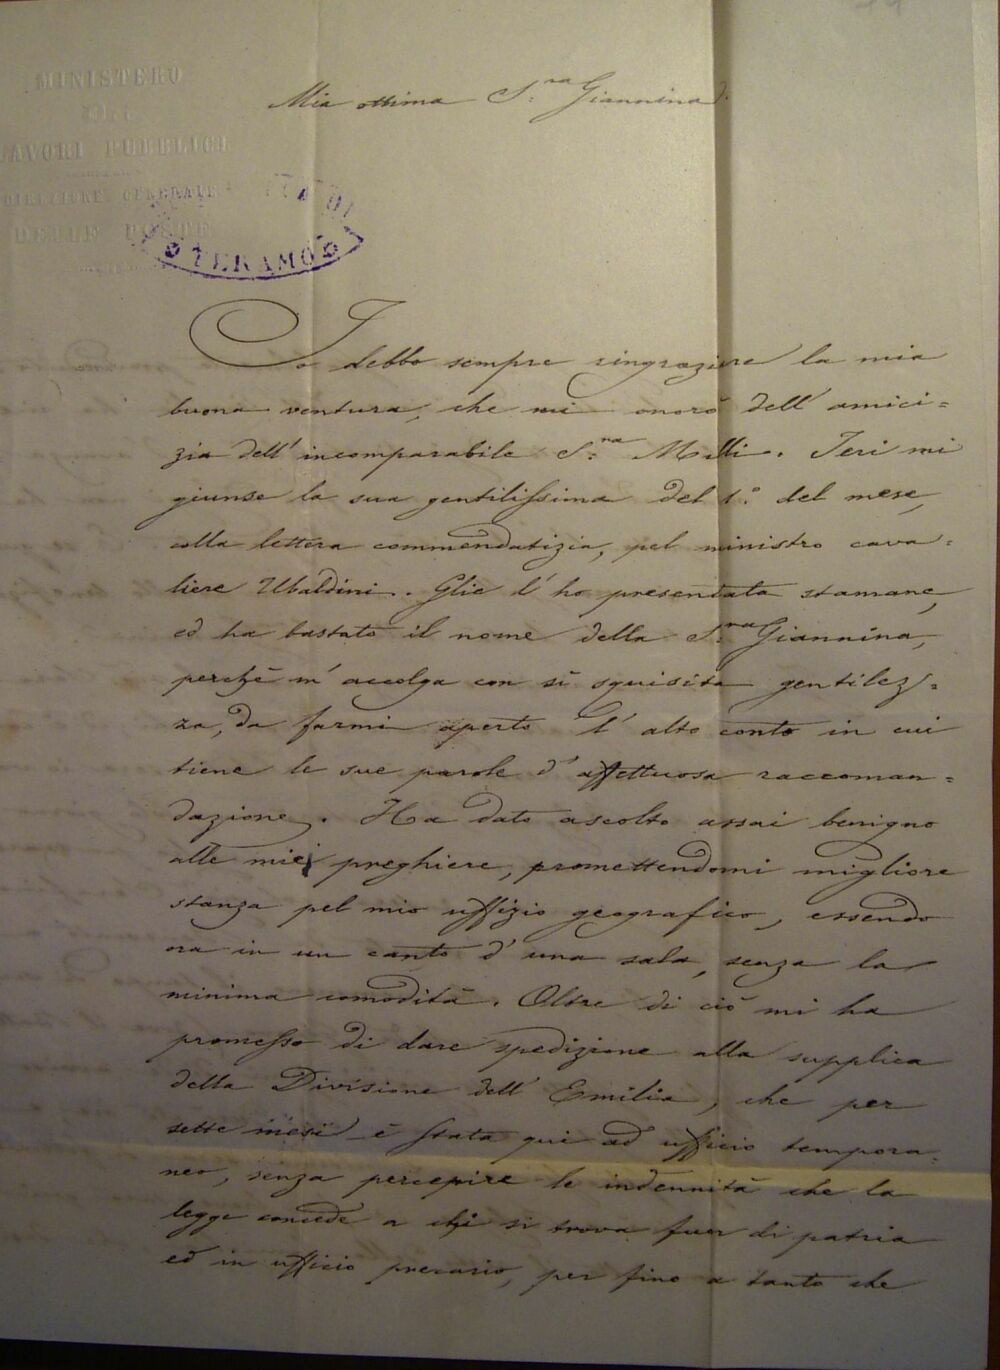 MINISTERO
DEI
LAVORI PUBBLICI
DIREZIONE GENERALE
DELLE POSTE
DI
TERAMO
Mia ottima S.ra Giannina
Io debbo sempre ringraziare la mia
buona ventura, che mi onorò dell' amici=
zia dell' incomparabile S.ra Milli. Ieri mi
giunse la sua gentilissima del 1.° del mese,
colla lettera commendatizia, pel ministro cava=
liere Ubaldini. Glie l' ho presentata stamane,
ed ha bastato il nome della S.ra Giannina,
perchè m' accolga con sì squisita gentilez=
za, da farmi aperto l' alto conto in cui
tiene le sue parole d' affettuosa raccoman=
dazione. Ha dato ascolto assai benigno
alle miei preghiere, promettendomi migliore
stanza pel mio uffizio geografico, essendo
ora in un canto d' una sala, senza la
minima comodità. Oltre di ciò mi ha
promesso di dare spedizione alla supplica
della Divisione dell' Emilia, che per
sette mesi è stata qui ad ufficio tempora=
neo, senza percepire le indennità che la
legge concede a chi si trova fuor di patria
ed in ufficio precario, per fino a tanto che